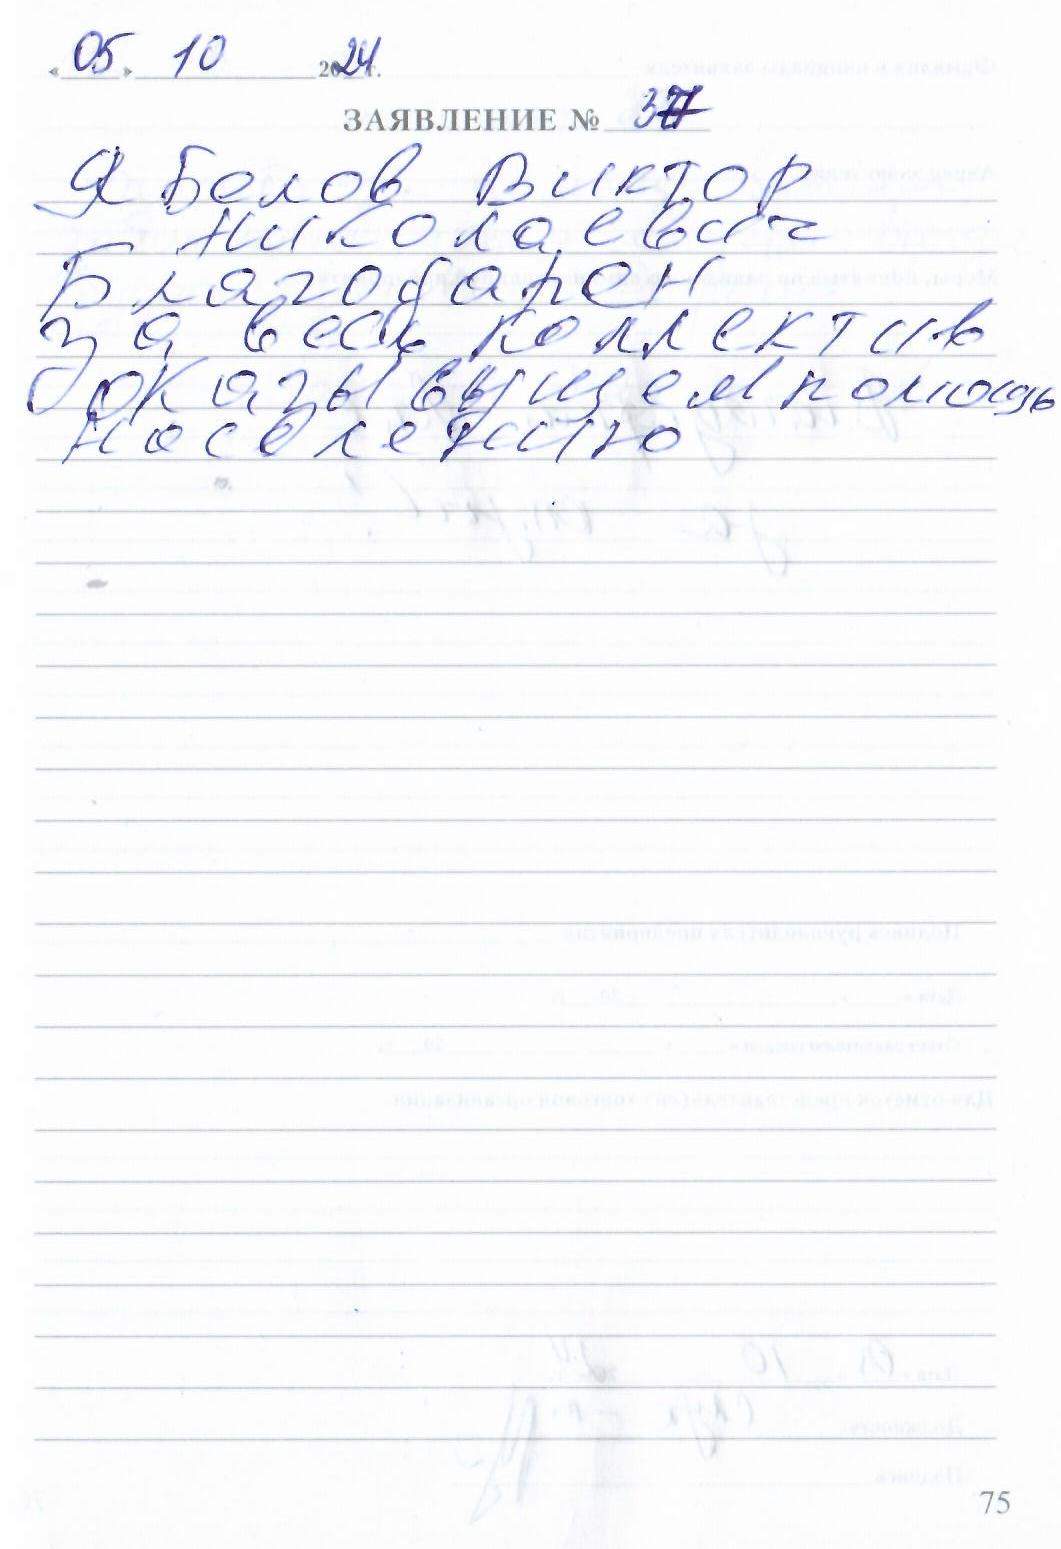 «05» 10 2024 г.
ЗАЯВЛЕНИЕ № 37
Я Белов Виктор
Николаевич
Благодарен
за весь коллектив
оказывующем помощь
населению
75